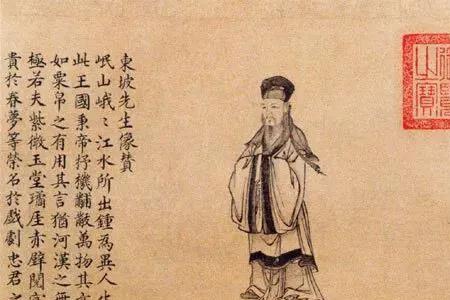 東坡先生像贊
岷山峨〻江水所出鍾為異人
此王國秉帝杼機黼黻萬物其
如粟帛之有用其言猶河漢之無
極若夫紫微玉堂瓊厓赤壁閱富
貴於春夢等榮名於戲劇忠君之
之寶